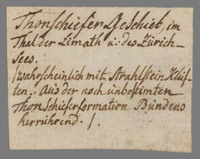 Thonschiefer Geschieb, im
Thal der Limath u. des Zürich-
Sees.
(wahrscheinlich mit Strahlstein Klüf-
ten. Aus der noch unbestimten
Thonschieferformation Bündens
herrührend.)